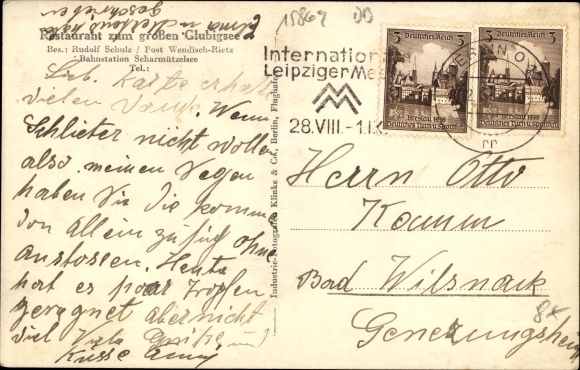 15869
Restaurant zum großen Glubigsee
Bes.: Rudolf Schulz / Post Wendisch-Rietz
Bahnstation Scharmützelsee
Tel.:
Lieb. Karte erhalt
vielen Dank. Wenn
Schlieter nicht wollen
also meinen Segen
haben Sie die
allein zu ohne
anstossen. Heute
hat es paar Tropfen
geregnet aber nicht
viel Viele Grüße und
Küsse
Industrie-Fotografen Klinke & Co., Berlin, Flughafen
Internationale
Leipziger Me
28.VIII.-1.IX.
Deutsches Reich 3
Breslau 1938
Deutsches Turn u. Sportfest
Deutsches Reich 3
Breslau 1938
Deutsches Turn u. Sportfest
Herrn Otto
Bad Wilsnack
Genezungsheim